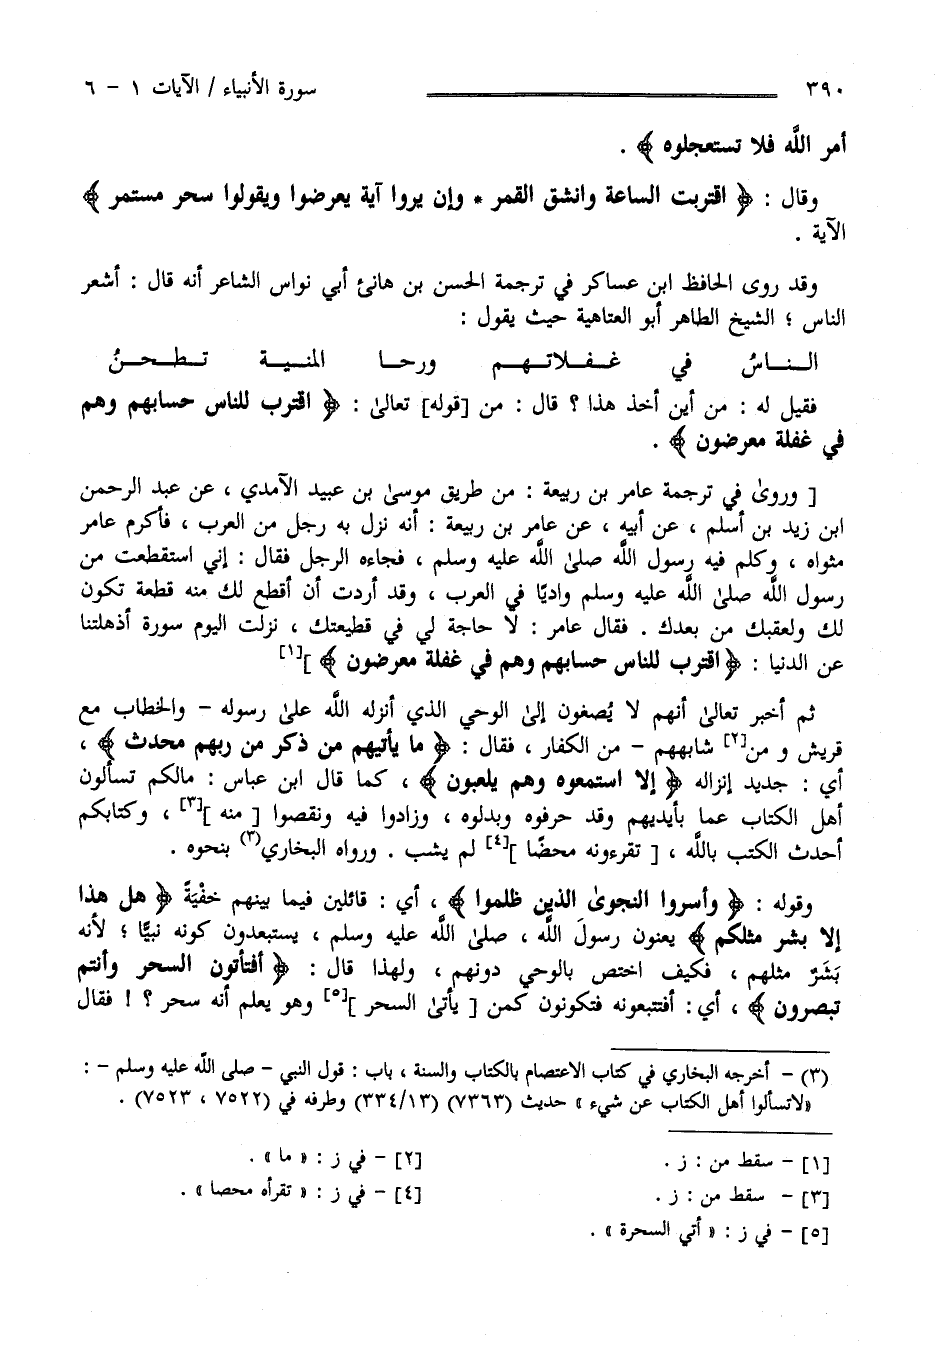 ٣٩٠ سورة الأنبياء / الآيات ١ - ٦
أمر اللَّه فلا تستعجلوه ﴾ .
وقال : ﴿ اقتربت الساعة وانشق القمر * وإن يروا آية يعرضوا ويقولوا سحر مستمر ﴾
الآية .
وقد روى الحافظ ابن عساكر في ترجمة الحسن بن هانئ أبي نواس الشاعر أنه قال : أشعر
الناس ؛ الشيخ الطاهر أبو العتاهية حيث يقول :
النـاسُ في غـفـلاتـهـم ورحـا المنيـة تـطـحـنُ
فقيل له : من أين أخذ هذا ؟ قال : من [قوله] تعالىٰ : ﴿ اقترب للناس حسابهم وهم
في غفلة معرضون ﴾ .
[ وروىٰ في ترجمة عامر بن ربيعة : من طريق موسىٰ بن عبيد الآمدي ، عن عبد الرحمن
ابن زيد بن أسلم ، عن أبيه ، عن عامر بن ربيعة : أنه نزل به رجل من العرب ، فأكرم عامر
مثواه ، وكلم فيه رسول اللَّه صلىٰ اللَّه عليه وسلم ، فجاءه الرجل فقال : إني استقطعت من
رسول اللَّه صلىٰ اللَّه عليه وسلم واديًا في العرب ، وقد أردت أن أقطع لك منه قطعة تكون
لك ولعقبك من بعدك . فقال عامر : لا حاجة لي في قطيعتك ، نزلت اليوم سورة أذهلتنا
عن الدنيا : ﴿ اقترب للناس حسابهم وهم في غفلة معرضون ﴾ ][١]
ثم أخبر تعالىٰ أنهم لا يُصغون إلىٰ الوحي الذي أنزله اللَّه علىٰ رسوله - والخطاب مع
قريش و من[٢] شابههم - من الكفار ، فقال : ﴿ ما يأتيهم من ذكر من ربهم محدث ﴾ ،
أي : جديد إنزاله ﴿ إلا استمعوه وهم يلعبون ﴾ ، كما قال ابن عباس : مالكم تسألون
أهل الكتاب عما بأيديهم وقد حرفوه وبدلوه ، وزادوا فيه ونقصوا [ منه ][٣] ، وكتابكم
أحدث الكتب باللَّه ، [ تقرءونه محضًا ][٤] لم يشب . ورواه البخاري(٣) بنحوه .
وقوله : ﴿ وأسروا النجوىٰ الذين ظلموا ﴾ ، أي : قائلين فيما بينهم خفْيَةً ﴿ هل هذا
إلا بشر مثلكم ﴾ يعنون رسولَ اللَّه ، صلىٰ اللَّه عليه وسلم ، يستبعدون كونه نبيًّا ؛ لأنه
بَشَرٌ مثلهم ، فكيف اختص بالوحي دونهم ، ولهذا قال : ﴿ أفتأتون السحر وأنتم
تبصرون ﴾ ، أي : أفتتبعونه فتكونون كمن [ يأتىٰ السحر ][٥] وهو يعلم أنه سحر ؟ ! فقال
(٣) - أخرجه البخاري في كتاب الاعتصام بالكتاب والسنة ، باب : قول النبي - صلى اللّه عليه وسلم - :
«لاتسألوا أهل الكتاب عن شيء » حديث (٧٣٦٣) (٣٣٤/١٣) وطرفه في (٧٥٢٢ ، ٧٥٢٣) .
[١] - سقط من : ز . [٢] - في ز : « ما » .
[٣] - سقط من : ز . [٤] - في ز : « تقرأه محصا » .
[٥] - في ز : « أتي السحرة » .